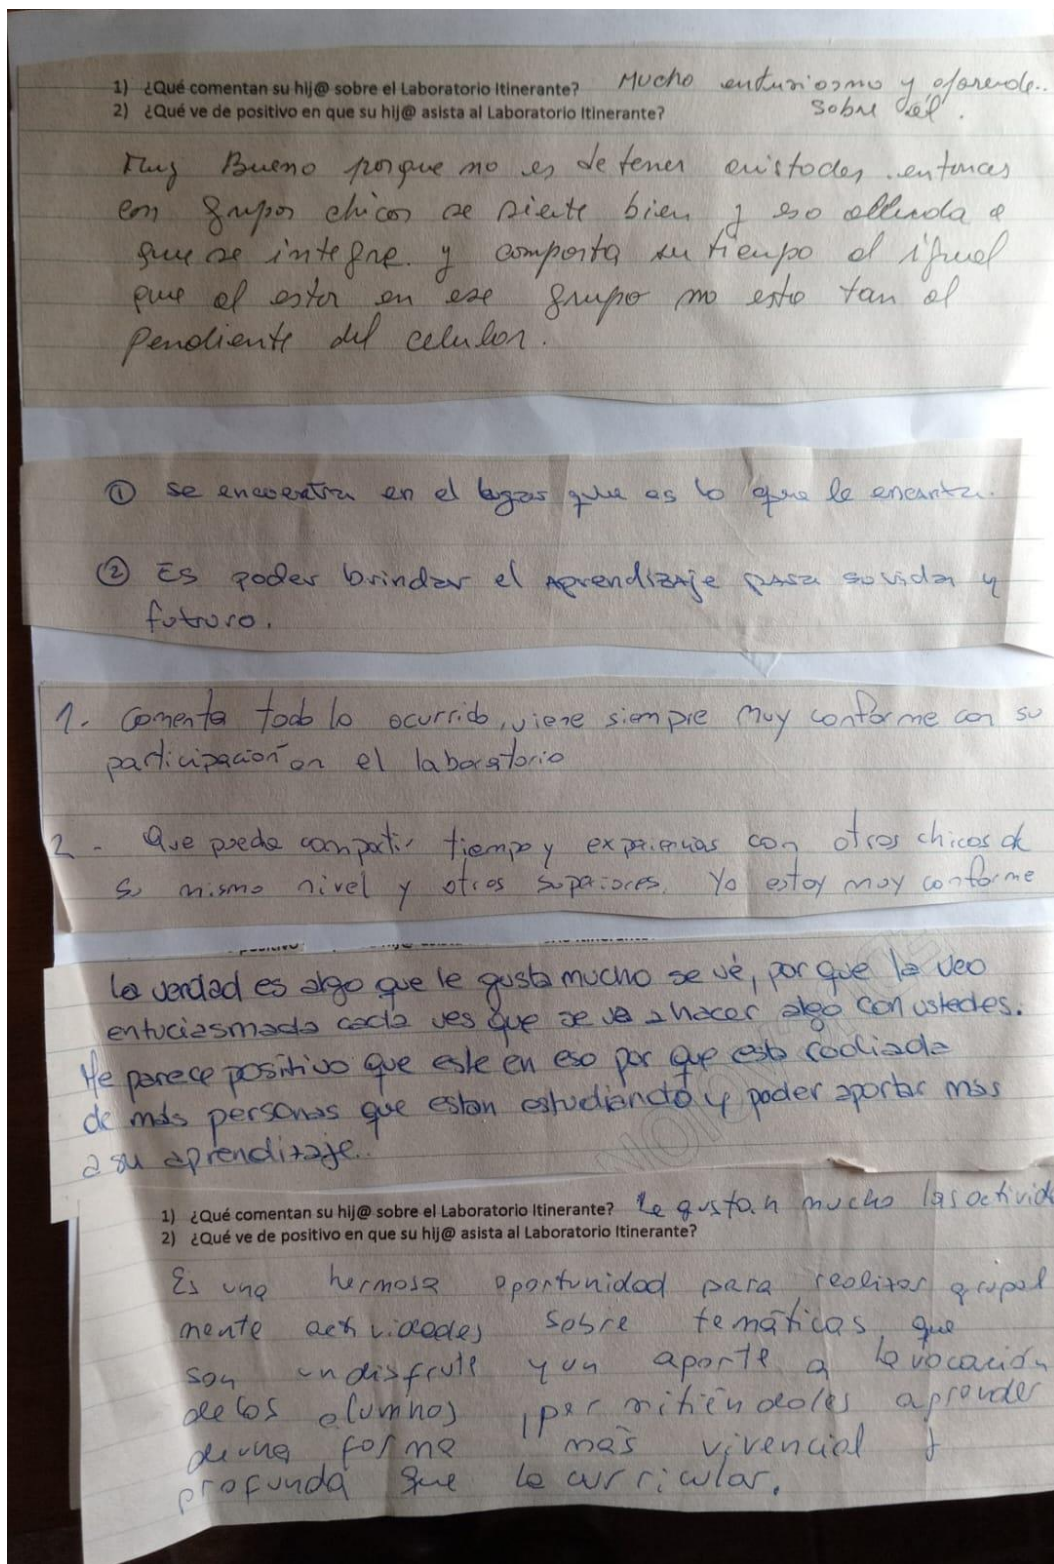 1) ¿Qué comentan su hij@ sobre el Laboratorio Itinerante? Mucho entusiasmo y aprende..
sobre él.
2) ¿Qué ve de positivo en que su hij@ asista al Laboratorio Itinerante?
Muy Bueno porque no es de tener amistades. entonces
en grupos chicos se siente bien y eso
que se integre. y comporta su tiempo al igual
que al estar en ese grupo no esta tan al
pendiente del celular.
① se encuentra en el lugar que es lo que le encanta.
② Es poder brindar el Aprendizaje para su vida y
futuro.
1. Comenta todo lo ocurrido, viene siempre muy conforme con su
participación en el laboratorio
2. Que puede compartir tiempo y experiencias con otros chicos de
su mismo nivel y otros superiores. Yo estoy muy conforme
la verdad es algo que le gusta mucho se vé, por que la veo
entuciasmada cada ves que se va a hacer algo con ustedes.
Me parece positivo que este en eso por que esta rodiada
de más personas que estan estudiando y poder aportar más
a su aprendizaje.
1) ¿Qué comentan su hij@ sobre el Laboratorio Itinerante? Le gustan mucho las activid
2) ¿Qué ve de positivo en que su hij@ asista al Laboratorio Itinerante?
Es una hermosa oportunidad para realizar grupal
mente actividades sobre temáticas, que
son un disfrute y un aporte a la vocación
de los alumnos, permitiéndoles aprender
de una forma más vivencial y
profunda que la curricular.